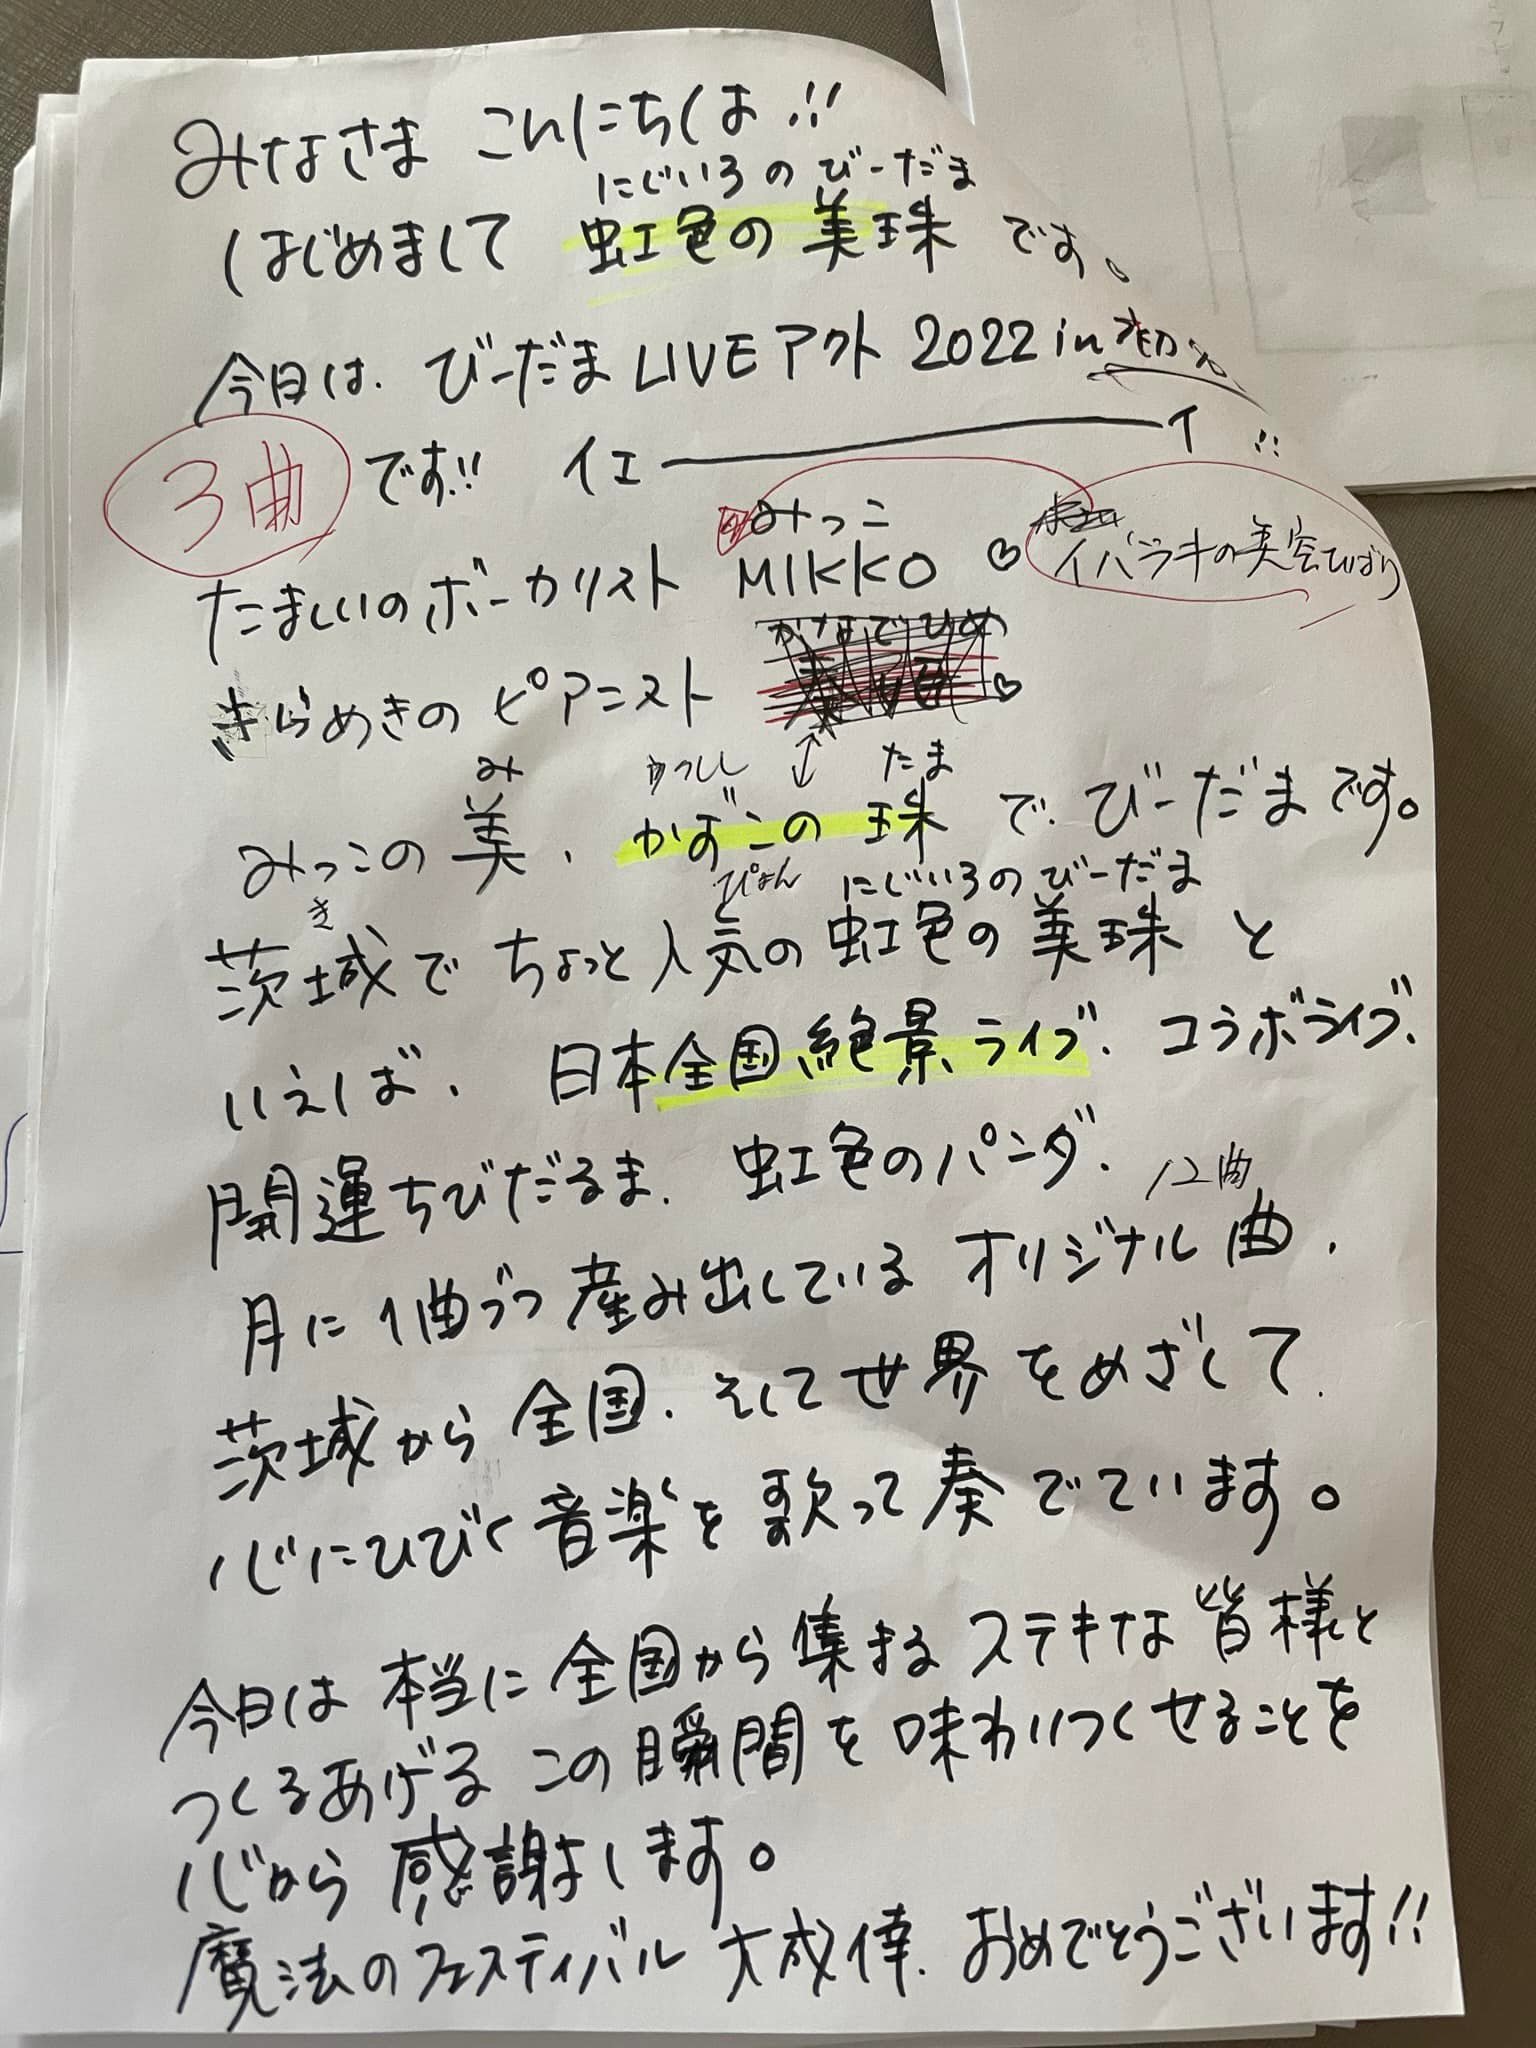 みなさま こんにちは!!
にじいろのびーだま
はじめまして 虹色の美珠 です。
今日は、びーだまLIVEアクト 2022 in
3曲 です!! イエ―――イ!!
みっこ
たましいのボーカリスト MIKKO ♡ イバラキの美空ひばり
かなでひめ
きらめきのピアニスト ♡
み たま
みっこの美、かずこの珠 で、びーだまです。
き ぴょん にじいろのびーだま
茨城で ちょっと人気の虹色の美珠 と
いえば、 日本全国絶景ライブ、コラボライブ、
開運ちびだるま、 虹色のパンダ、
12曲
月に1曲づつ産み出している オリジナル曲、
茨城から全国、そして世界をめざして、
心にひびく音楽を歌って奏でています。
今日は本当に全国から集まるステキな皆様と
つくるあげるこの瞬間を味わいつくせることを
心から感謝します。
魔法のフェスティバル 大成倖、おめでとうございます!!